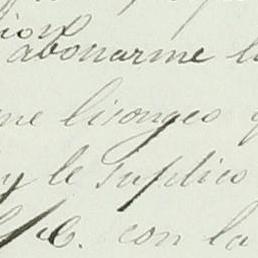 ion
abonarme l
me lisongeo q
y le suplico
con la